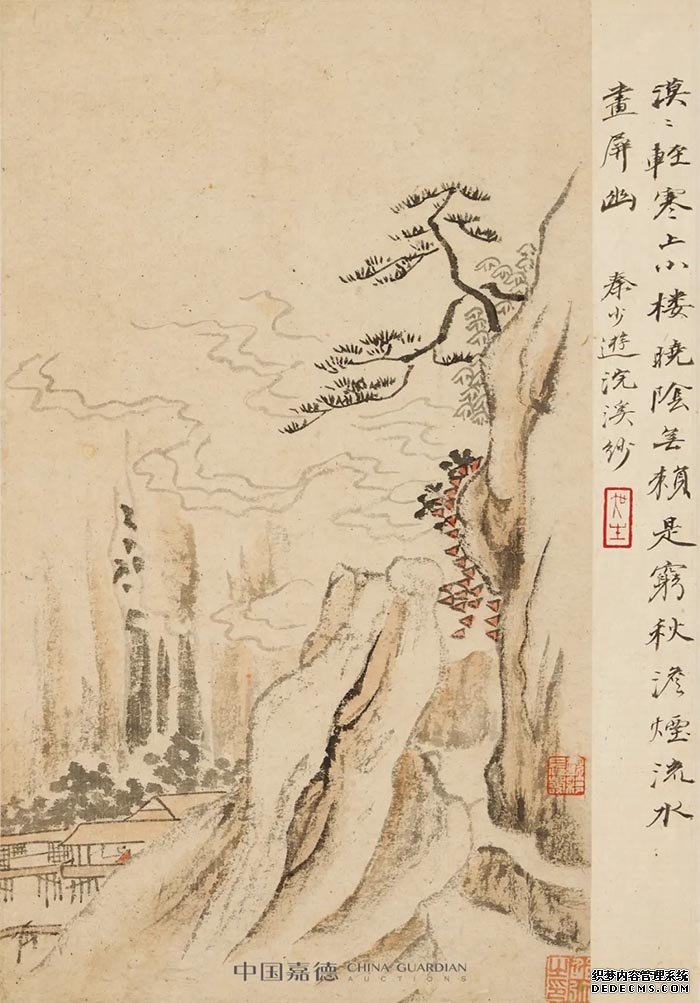 漠〻輕寒上小楼曉陰無頼是窮秋澹煙流水
畫屏幽
秦少遊浣溪紗
中国嘉德 CHINA GUARDIAN
AUCTIONS
织梦内容管理系统
DEDECMS.COM